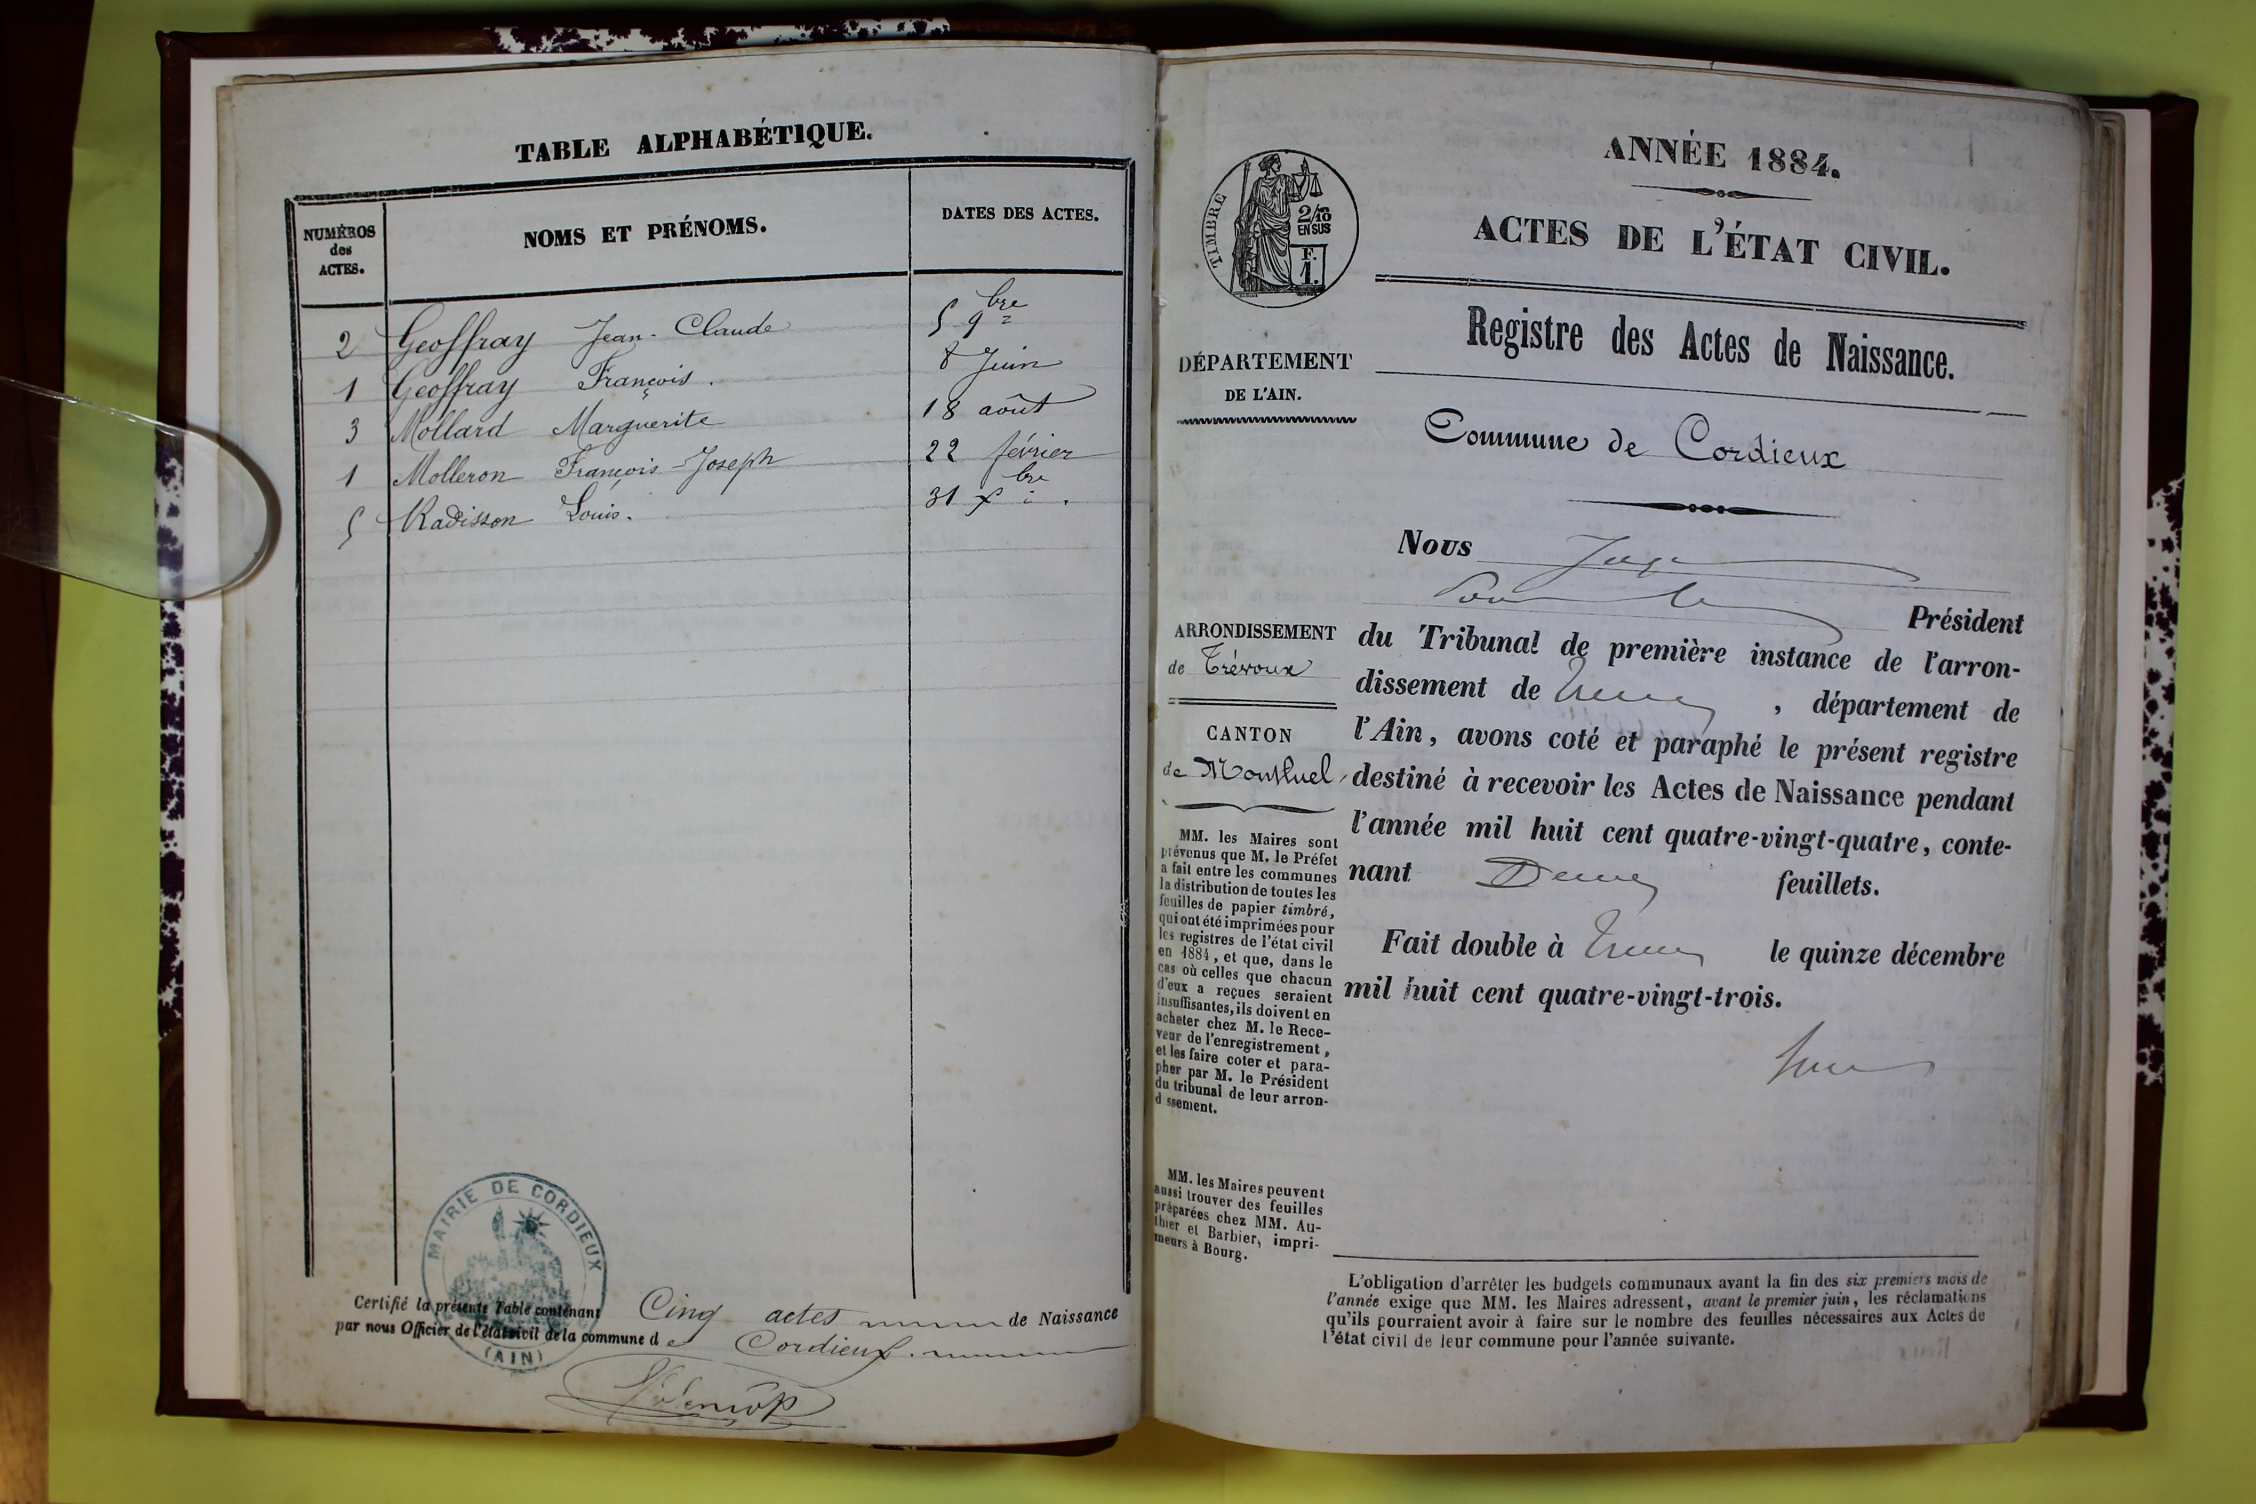 TABLE ALPHABÉTIQUE.
NUMÉROS des ACTES. NOMS ET PRÉNOMS. DATES DES ACTES.
2 Geoffray Jean-Claude 5 9bre
1 Geoffray François. 8 Juin
3 Mollard Marguerite 18 août
1 Molleron François-Joseph 22 février
5 Radisson Louis. 31 Xbre.
MAIRIE DE CORDIEUX
(AIN)
Certifié la présente Table contenant Cinq actes de Naissance
par nous Officier de l'état civil de la commune de Cordieux.
TIMBRE
2/10 EN SUS
F. 1.
ANNÉE 1884.
ACTES DE L'ÉTAT CIVIL.
Registre des Actes de Naissance.
DÉPARTEMENT
DE L'AIN.
Commune de Cordieux
ARRONDISSEMENT
de Trévoux
CANTON
de Montluel
MM. les Maires sont
prévenus que M. le Préfet
a fait entre les communes
la distribution de toutes les
feuilles de papier timbré,
qui ont été imprimées pour
les registres de l'état civil
en 1884, et que, dans le
cas où celles que chacun
d'eux a reçues seraient
insuffisantes, ils doivent en
acheter chez M. le Rece-
veur de l'enregistrement,
et les faire coter et para-
pher par M. le Président
du tribunal de leur arron-
d ssement.
MM. les Maires peuvent
aussi trouver des feuilles
préparées chez MM. Au-
thier et Barbier, impri-
meurs à Bourg.
Nous Juge
Pour le Président
du Tribunal de première instance de l'arron-
dissement de , département de
l'Ain, avons coté et paraphé le présent registre
destiné à recevoir les Actes de Naissance pendant
l'année mil huit cent quatre-vingt-quatre, conte-
nant Deux feuillets.
Fait double à le quinze décembre
mil huit cent quatre-vingt-trois.
L'obligation d'arrêter les budgets communaux avant la fin des six premiers mois de
l'année exige que MM. les Maires adressent, avant le premier juin, les réclamations
qu'ils pourraient avoir à faire sur le nombre des feuilles nécessaires aux Actes de
l'état civil de leur commune pour l'année suivante.